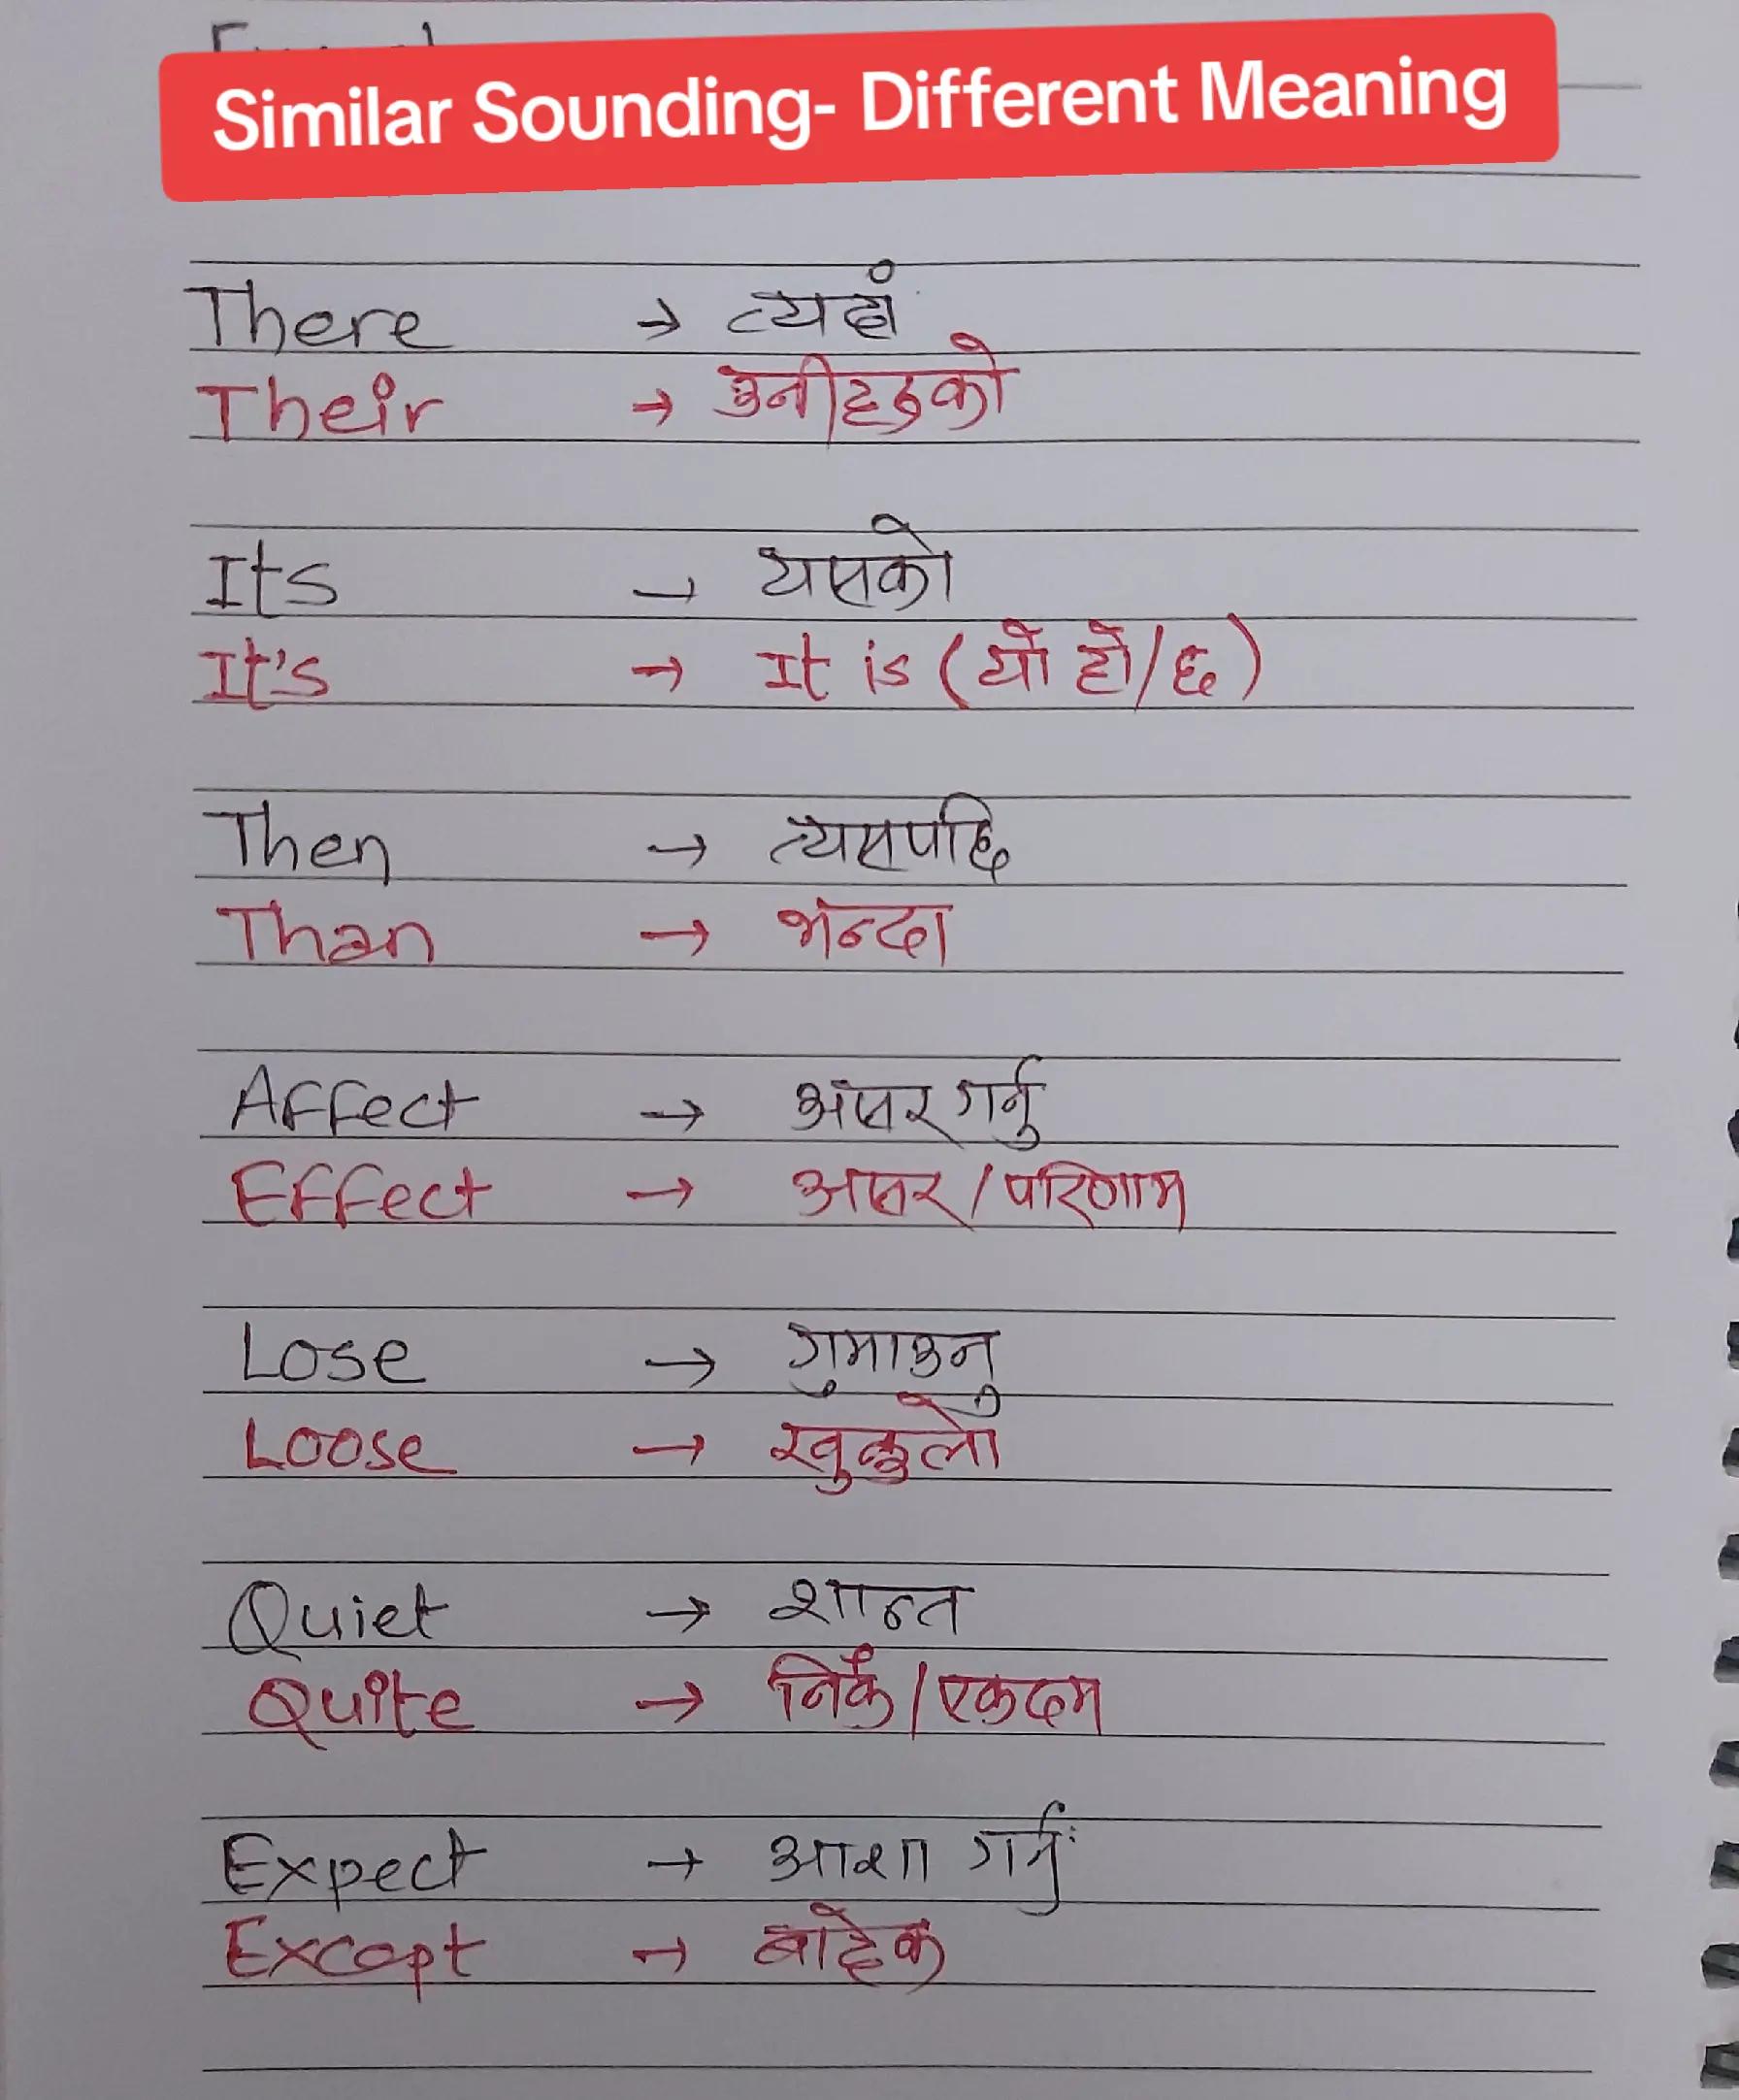 Similar Sounding- Different Meaning
There → त्यहाँ
Their → उनीहरुको
Its → यसको
It's → It is (यो हो/छ)
Then → त्यसपछि
Than → भन्दा
Affect → असर गर्नु
Effect → असर/परिणाम
Lose → गुमाउनु
Loose → खुकुलो
Quiet → शान्त
Quite → निकै/एकदम
Expect → आशा गर्नु
Except → बाहेक